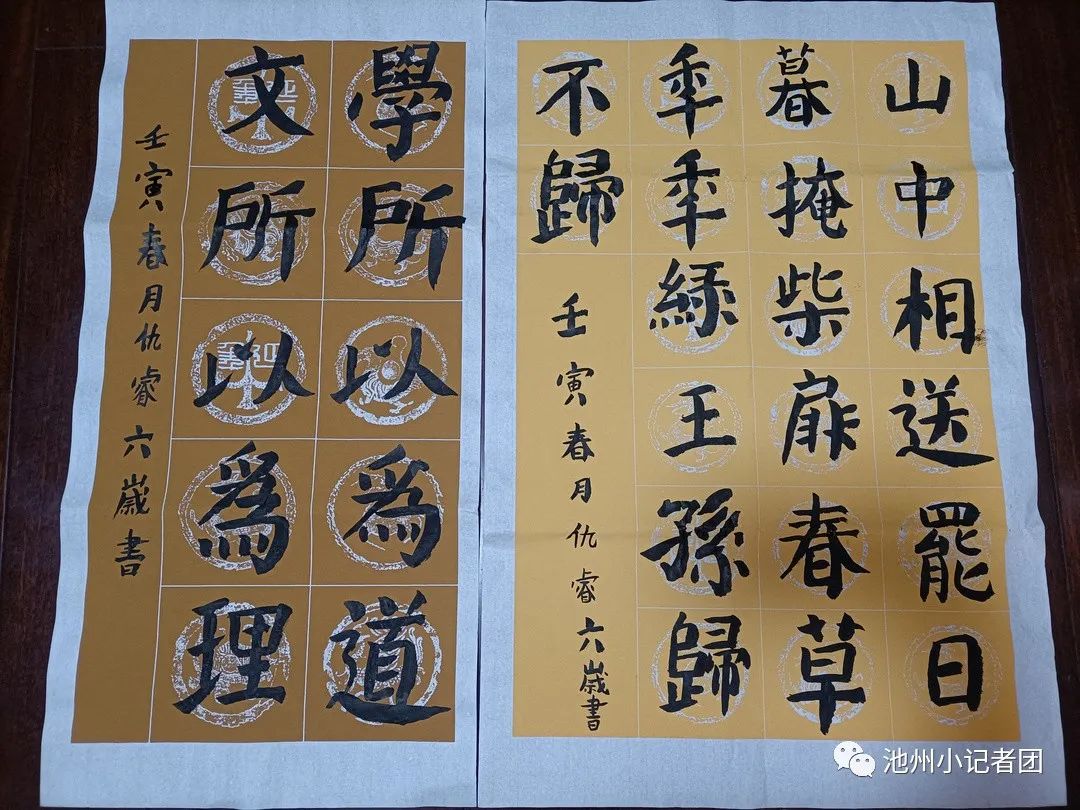 山中相送罷日
暮掩柴扉春草
秊秊綠王孫歸
不歸
壬寅春月仇睿六歲書
學所以爲道
文所以爲理
壬寅春月仇睿六歲書
池州小记者团